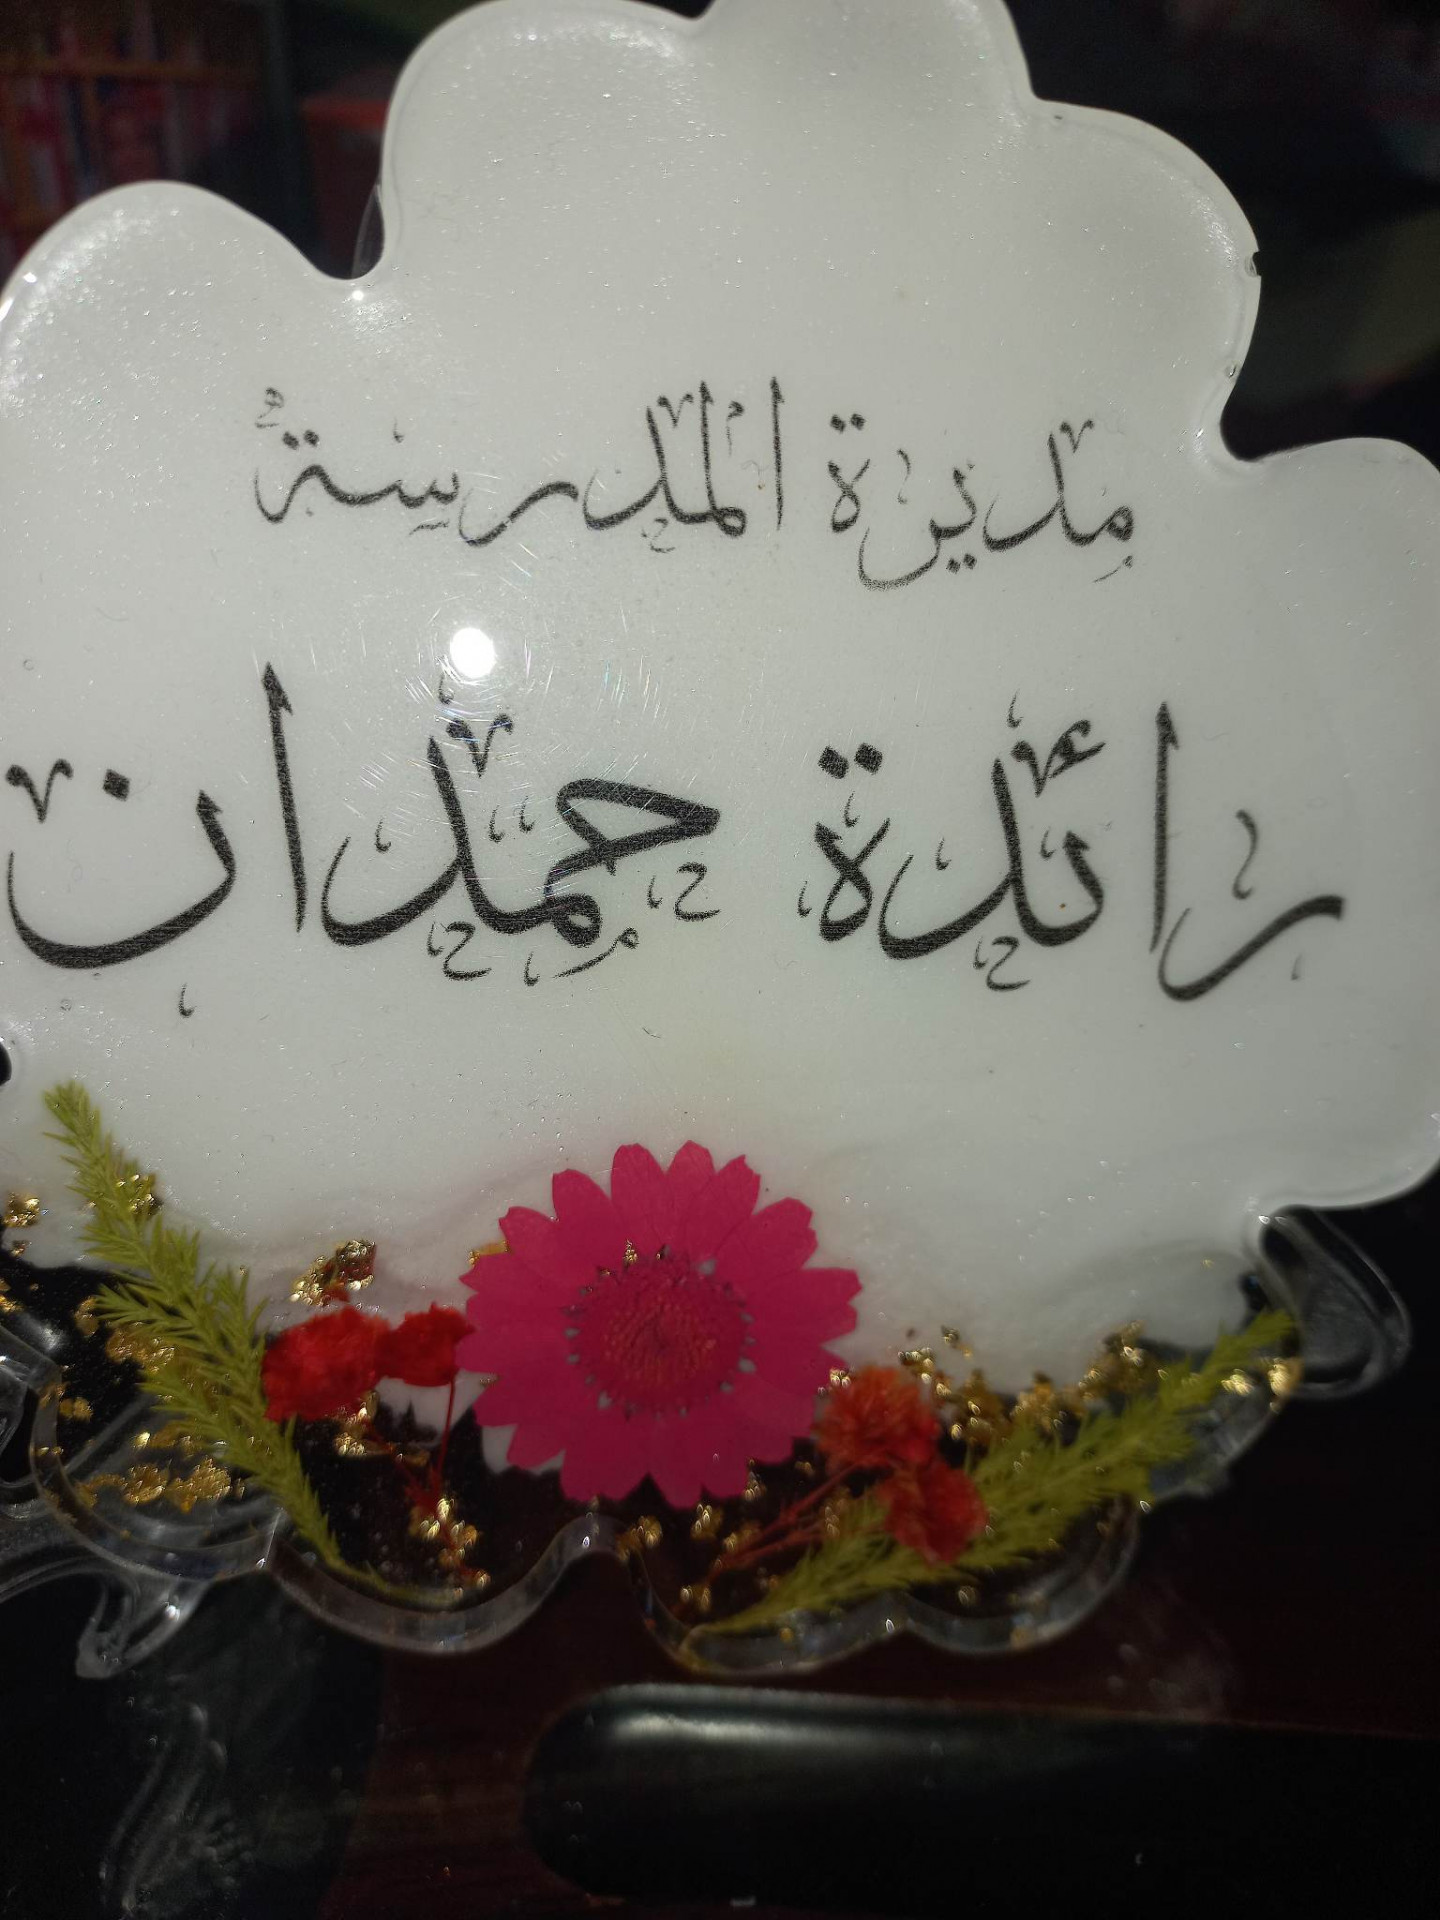 مديرة المدرسة
رائدة حمدان